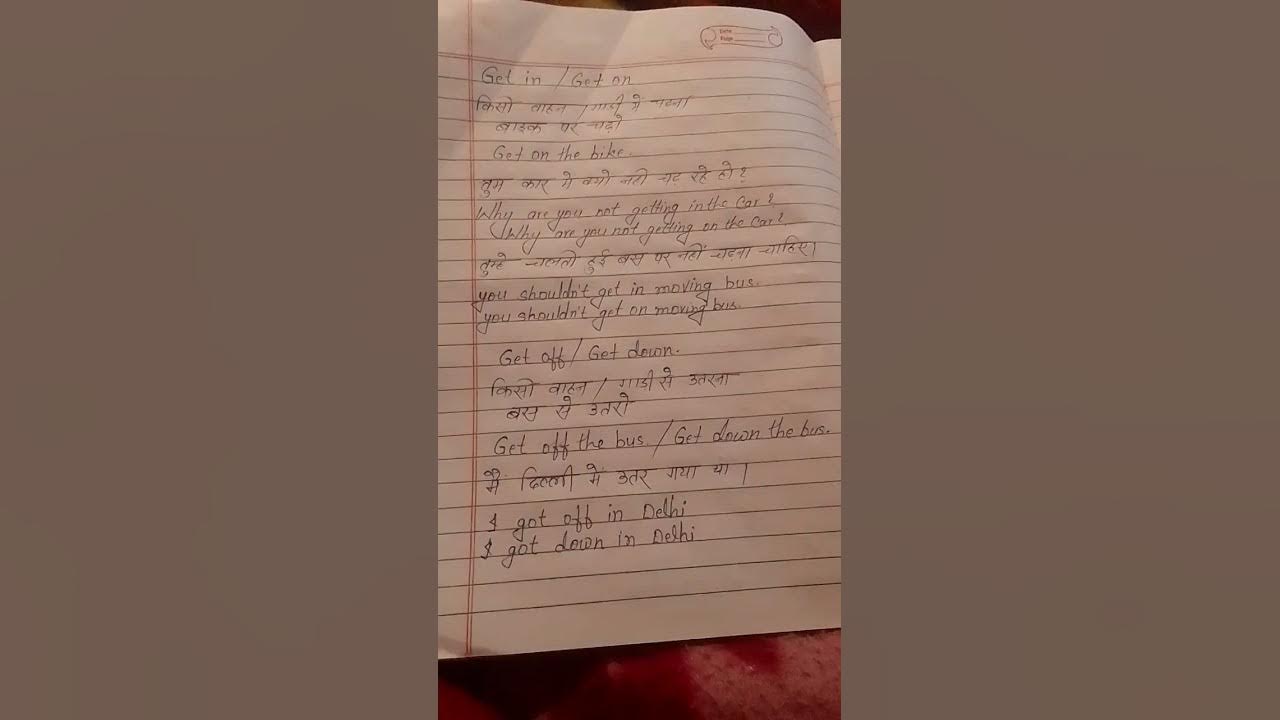 Date
Page
Get in / Get on
किसी वाहन / गाडी में चढना
बाइक पर चढ़ो
Get on the bike.
तुम कार में क्यों नही चढ़ रहे हो?
Why are you not getting in the Car?
Why are you not getting on the Car?
तुम्हे चलती हुई बस पर नहीं चढना चाहिए।
you shouldn't get in moving bus.
you shouldn't get on moving bus.
Get off / Get down.
किसी वाहन / गाडी से उतरना
बस से उतरो
Get off the bus. / Get down the bus.
मैं दिल्ली में उतर गया था।
I got off in Delhi
I got down in Delhi